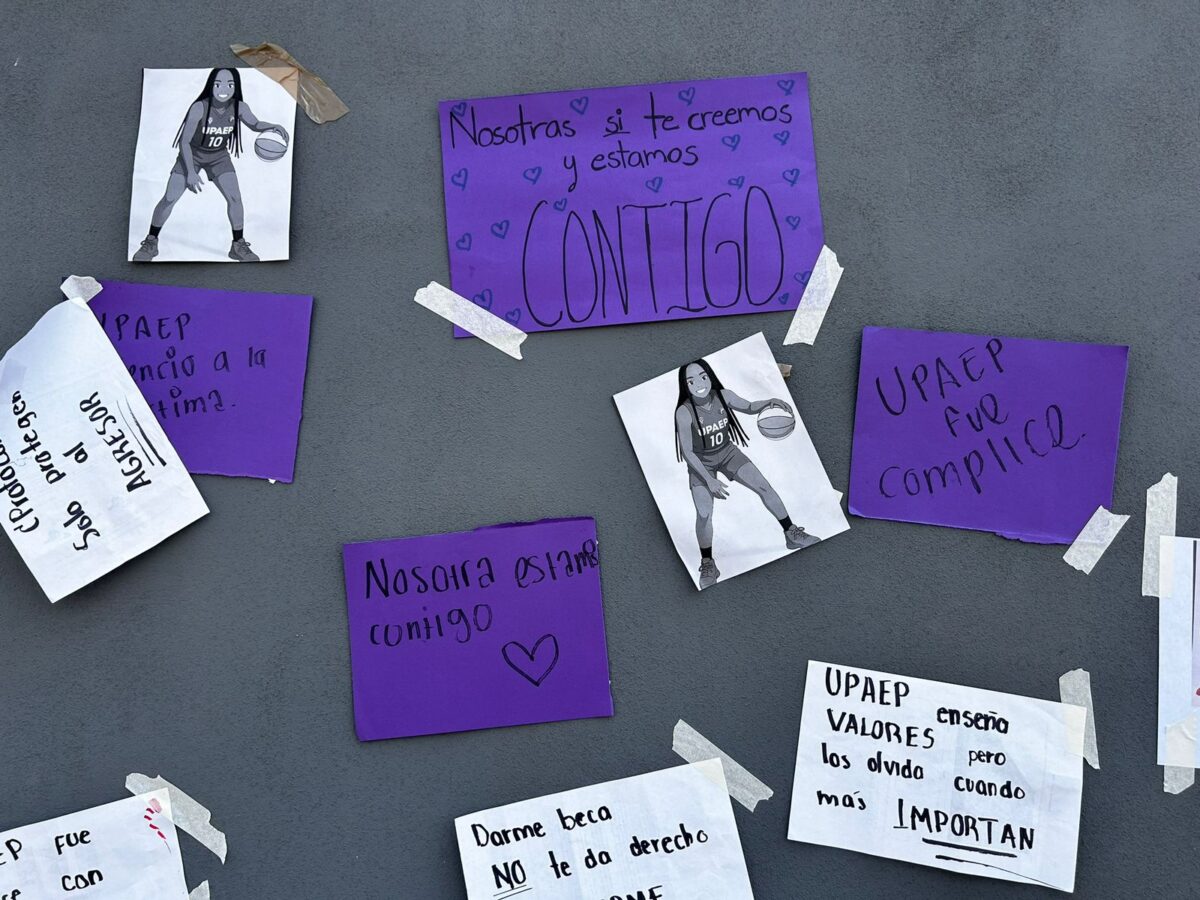 UPAEP
10
Nosotras si te creemos
y estamos
CONTIGO
UPAEP
a la
(Protocol
Solo protegen
al
AGRESOR
UPAEP
10
UPAEP
FUE
complice.
Nosotra estamos
contigo
UPAEP enseña
VALORES pero
los olvida cuando
más IMPORTAN
Darme beca
NO te da derecho
FUE
con